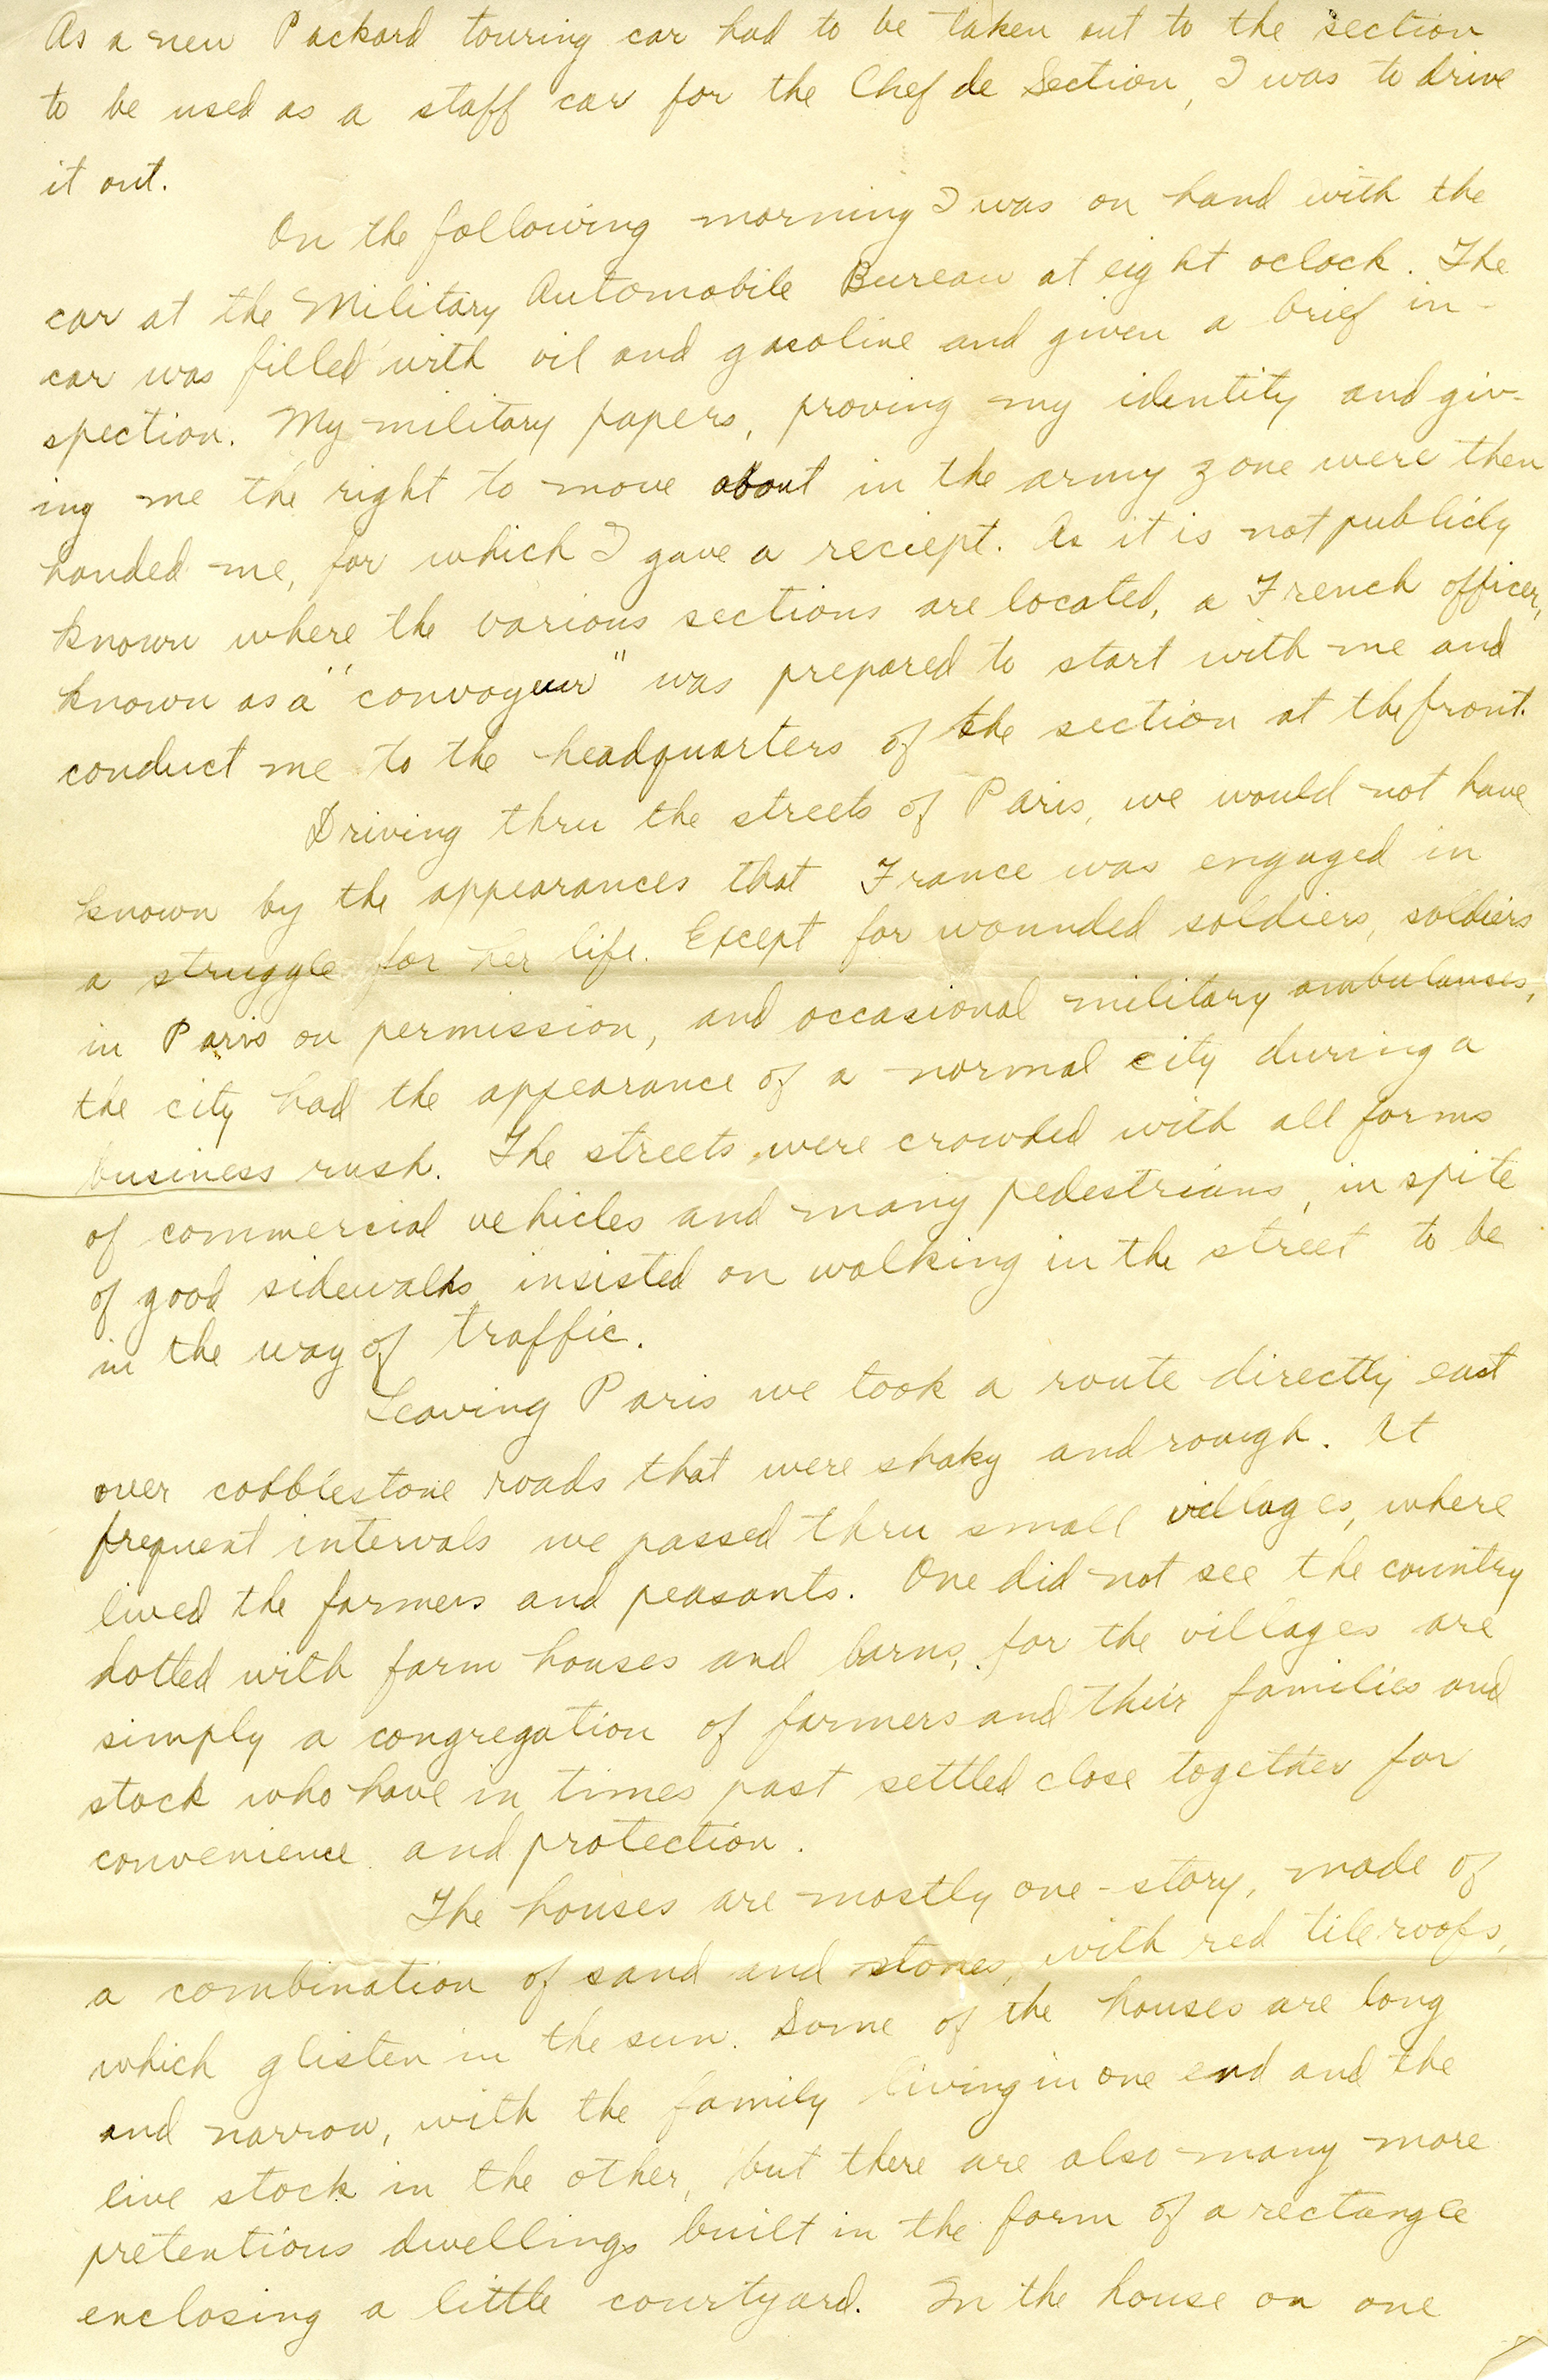 As a new Packard touring car had to be taken out to the section
to be used as a staff car for the Chef de Section, I was to drive
it out.
On the following morning I was on hand with the
car at the Military Automobile Bureau at eight oclock. The
car was filled with oil and gasoline and given a brief in-
spection. My military papers, proving my identity and giv-
ing me the right to move about in the army zone were then
handed me, for which I gave a reciept. As it is not publicly
known where the various sections are located, a French officer,
known as a "convoyeur" was prepared to start with me and
conduct me to the headquarters of the section at the front.
Driving thru the streets of Paris, we would not have
known by the appearances that France was engaged in
a struggle for her life. Except for wounded soldiers, soldiers
in Paris on permission, and occasional military ambulances,
the city had the appearance of a normal city during a
business rush. The streets were crowded with all forms
of commercial vehicles and many pedestrians, in spite
of good sidewalks insisted on walking in the street to be
in the way of traffic.
Leaving Paris we took a route directly east
over cobblestone roads that were shaky and rough. At
frequent intervals we passed thru small villages, where
lived the farmers and peasants. One did not see the country
dotted with farm houses and barns, for the villages are
simply a congregation of farmers and their families and
stock who have in times past settled close together for
convenience and protection.
The houses are mostly one-story, made of
a combination of sand and stones, with red tile roofs,
which glisten in the sun. Some of the houses are long
and narrow, with the family living in one end and the
live stock in the other, but there are also many more
pretentious dwellings built in the form of a rectangle
enclosing a little courtyard. In the house on one